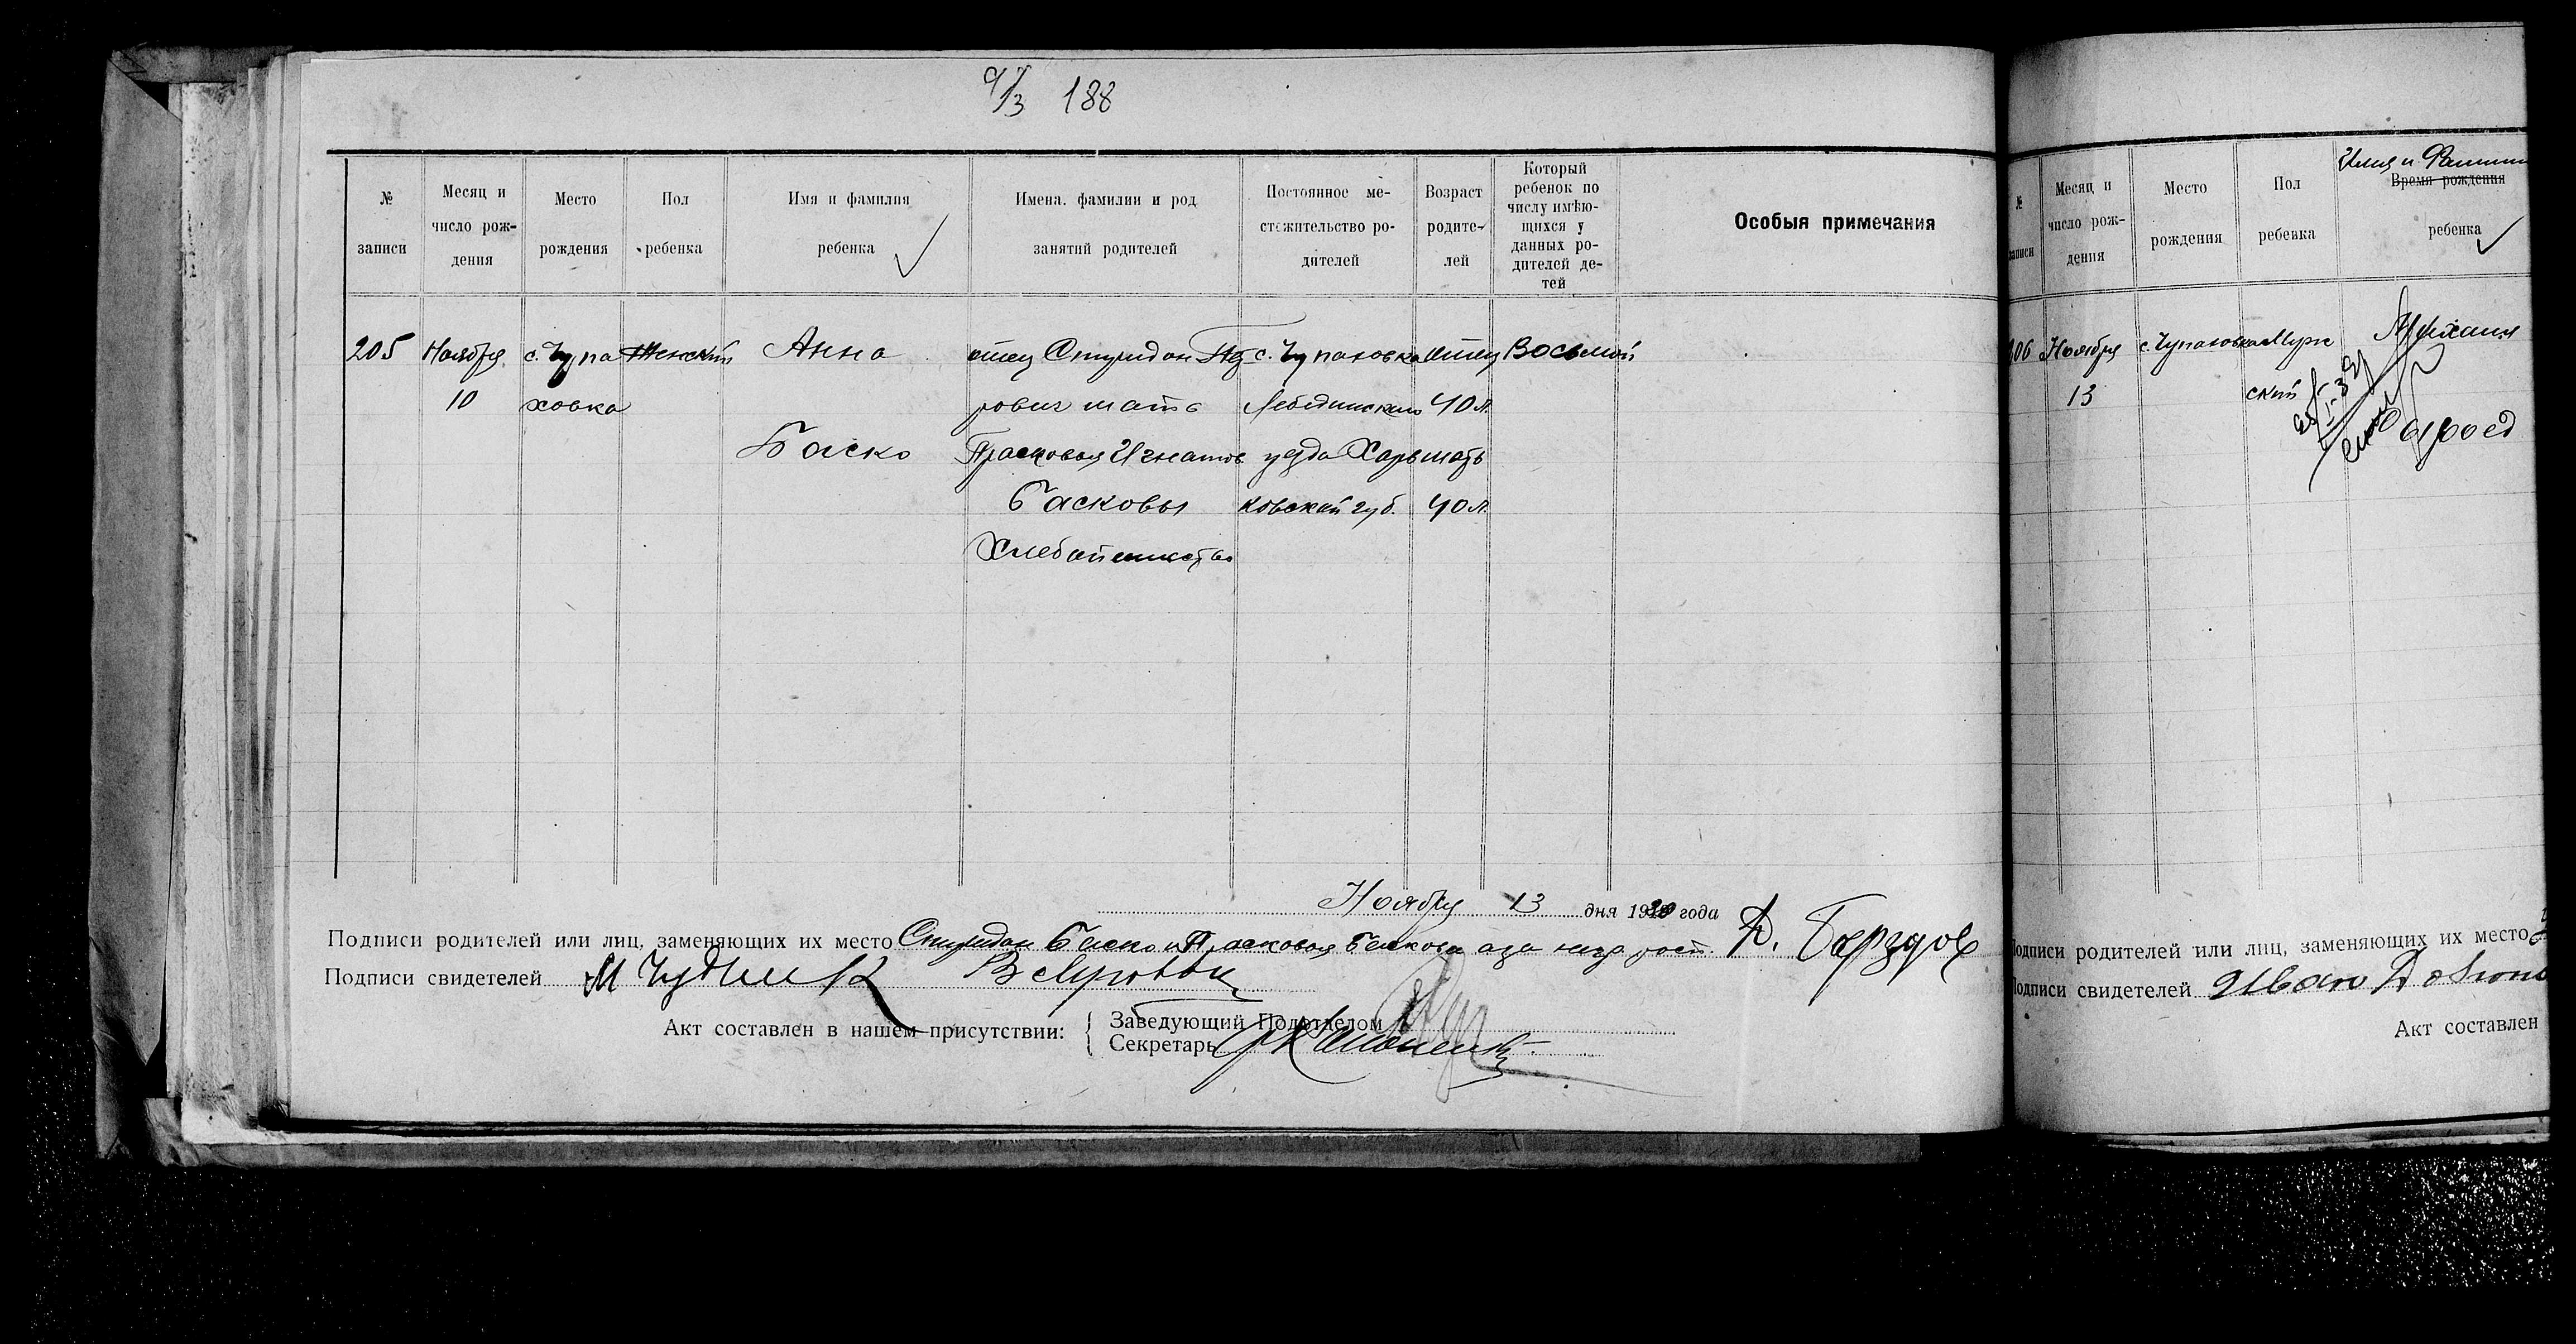 9/13 188
№ записи
Месяц и число рождения
Место рождения
Пол ребенка
Имя и фамилия ребенка
Имена, фамилии и род занятий родителей
Постоянное местожительство родителей
Возраст родителей
Который ребенок по числу имѣющихся у данных родителей детей
Особыя примечания
205
Ноября
10
с. Чупа
ховка
Женский
Анна
Баско
отец Спиридон
рович мать
Прасковья Игнатов
Басковы
Хлебопашество
с. Чупаховка
Лебединского
уезда Харь
ковской губ.
Отец
40 л.
мать
40 л.
Восьмой
Ноября 13 дня 1920 года
Подписи родителей или лиц, заменяющих их место Спиридон Баско и Прасковья Баскова
Подписи свидетелей М Чудник
Акт составлен в нашем присутствии:
Заведующий Подотделом
Секретарь
№ записи
Месяц и число рождения
Место рождения
Пол ребенка
Имя и Фамилия
Время рождения
ребенка
206
Ноября
13
с. Чупаховка
Муж
ский
Михаил
Подписи родителей или лиц, заменяющих их место
Подписи свидетелей Иван
Акт составлен